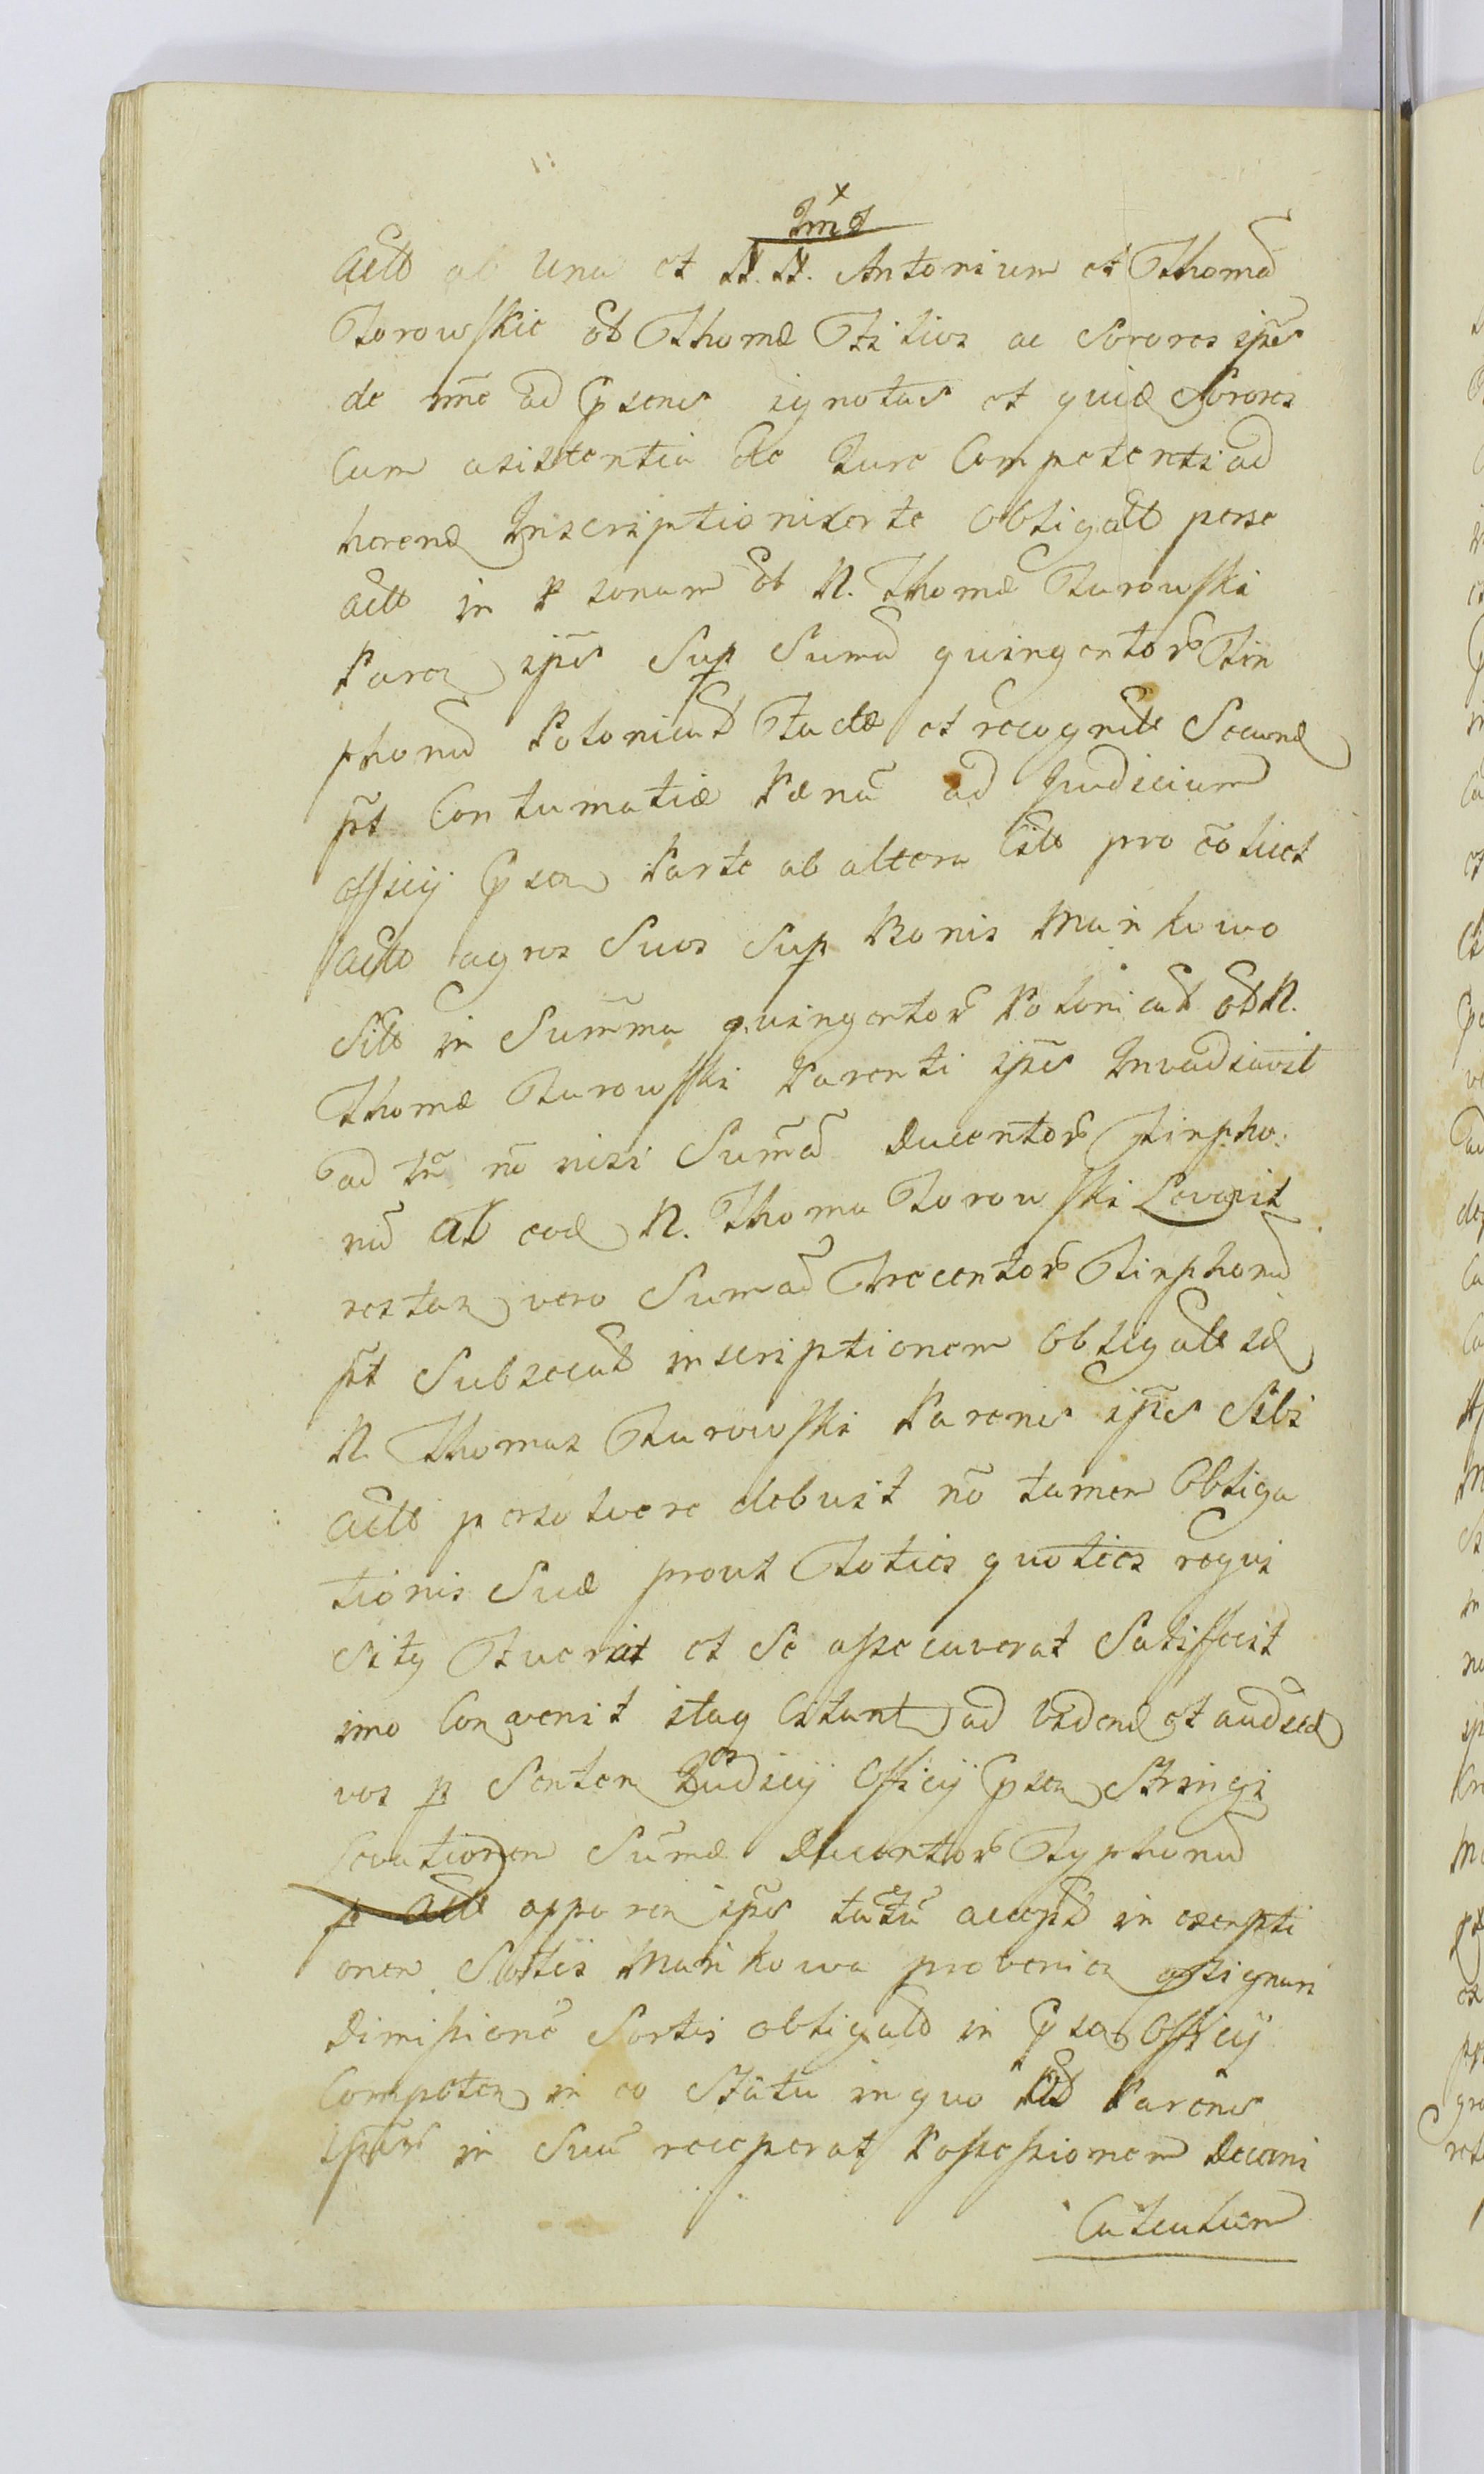 x
Imẽ d
Actõ ab Una et N. N. Antonium et Thomã
Torowskie õb Thomæ Filios ac Sorores ipẽs
de nñe ad Gpsens ignotas et quidẽ Sorores
Cum asistentia de Jure Competenti ad
herenẽ Inscriptioni sorte Obligatõ perse
actõ in Psonam õb N. Thomæ Turowski
Paren ipẽs Sup Sumã quingentorũ Tin
phonũ Polonicalũ Factæ et recognitõ Secund
pt Contumatiæ Pænã ad Judicium
officij Gpsen Parte ab altera Citõ pro eo licet
actõ agros Suos Sup Bonis Mankowo
Sitõ in Summa quingentorũ Polonicalũ õb N.
Thomæ Turowski Parenti ipẽs Invadiavit
ad tñ nõ nisi Sumã Ducentorũ Tinpho
nũ ab eod N. Thoma Torowski Levavit
restan vero Sumã Trecentorũ Tinphonũ
pt Subsecutã inscriptionem Obligatõ id
N. Thomas Turowski Parens ipẽs Sibi
actõ persolvere debuit nõ tamen Obliga
tionis Suæ prout Toties quoties requi
sitq fuerat et Se assecuverat Satisfecit
imo Convenit itaq Citant ad Vidend et audied
vos p Senten Judicij Officij Gpsen Stringi
Levationem Sumæ Ducentorũ Typhonũ
p actõ apparen ipẽs tñtũ accepta in exempti
onem Sortis Mankowa provenien assignari
Dimissionẽ Sortis obligatõ in Gpsen Officij
Competen in eo Statu in quo õb Parens
ipẽs in Suã receperat Possessionem Decerni
Calculum